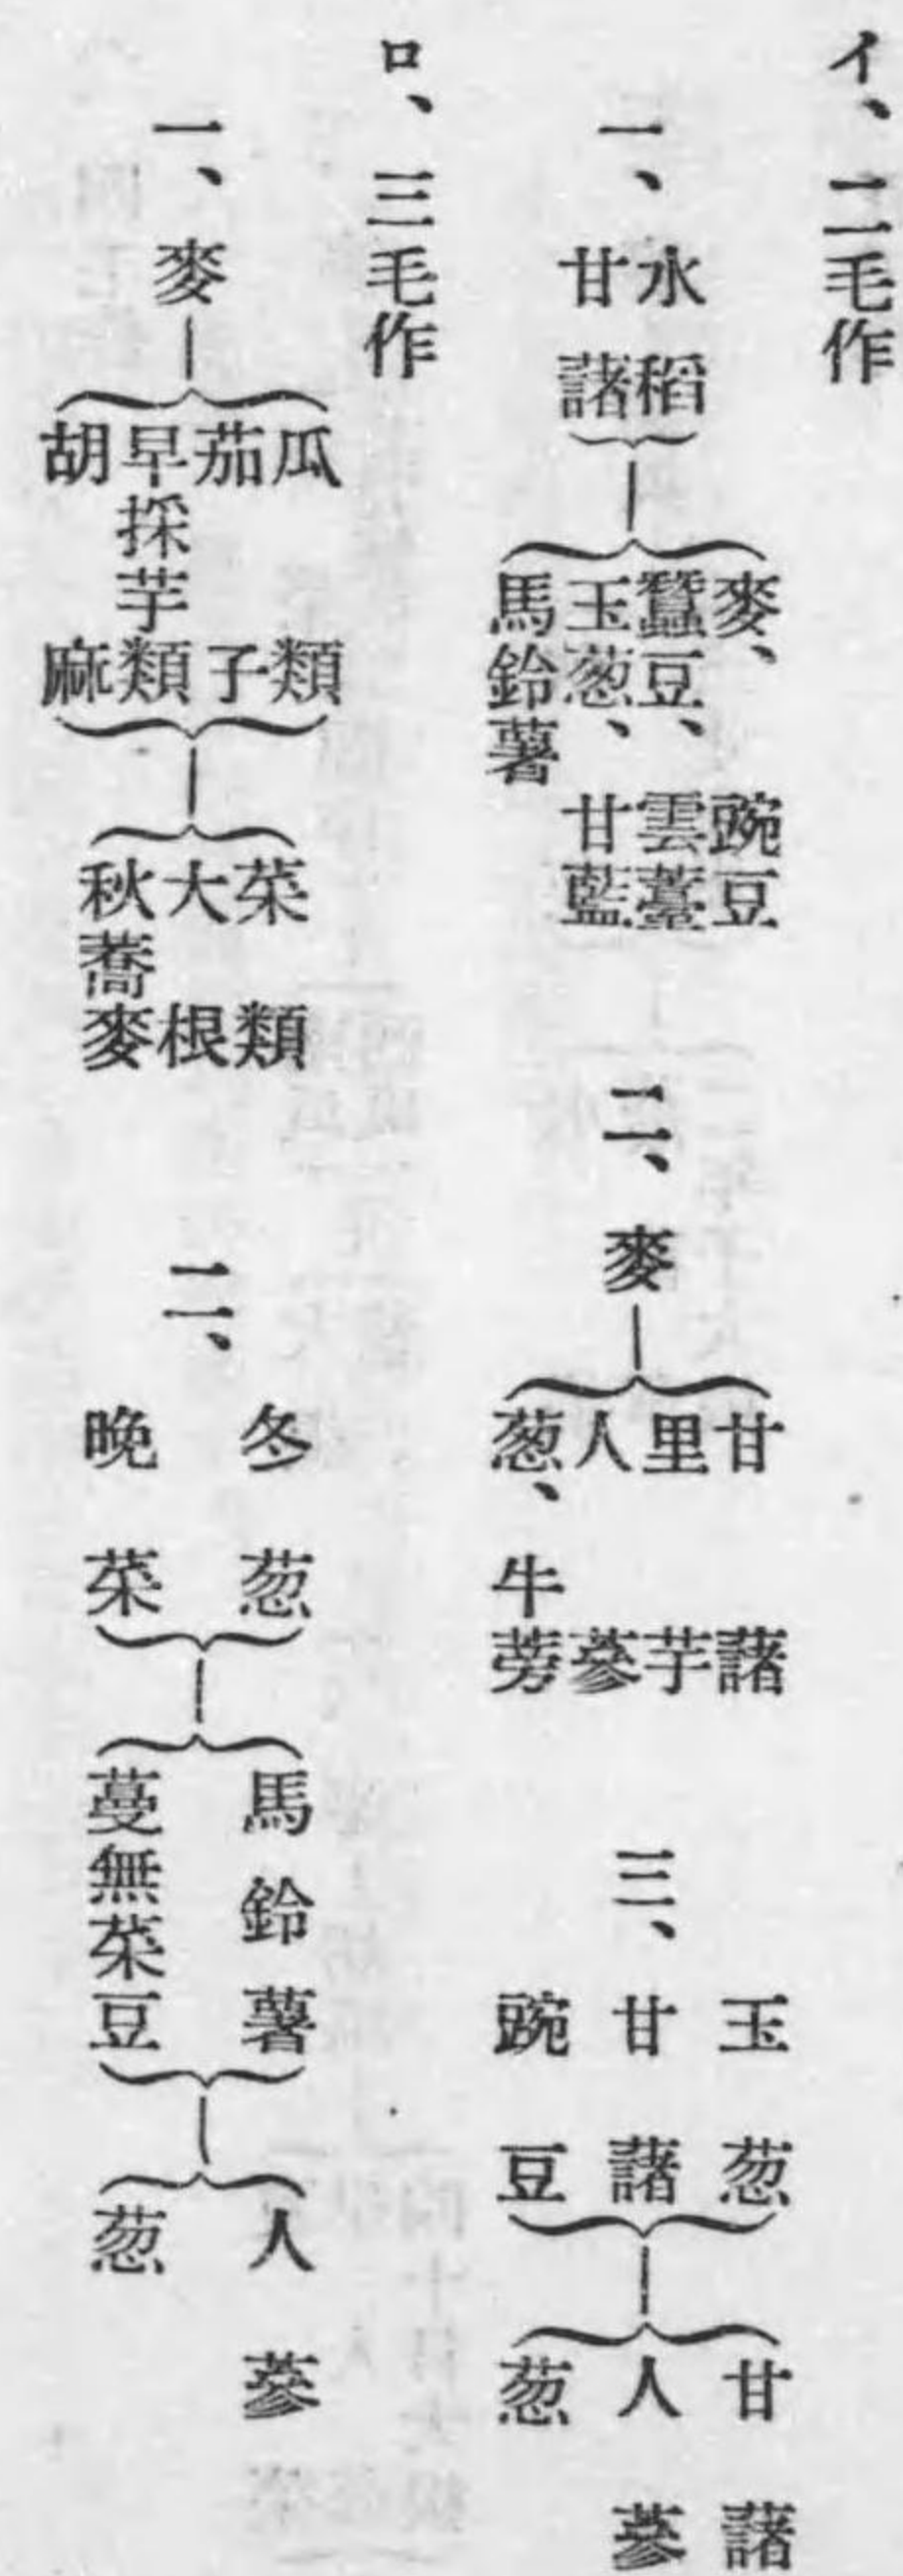 イ、二毛作
一、
水稻
甘藷
麥、豌豆
蠶豆、雲薹
玉葱、甘藍
馬鈴薯
二、麥
甘藷
里芋
人蔘
葱、牛蒡
三、
玉葱
甘藷
豌豆
甘藷
人蔘
葱
ロ、三毛作
一、麥
瓜類
茄子
早採芋類
胡麻
菜類
大根
秋蕎麥
二、
冬葱
晩菜
馬鈴薯
蔓無菜豆
人蔘
葱